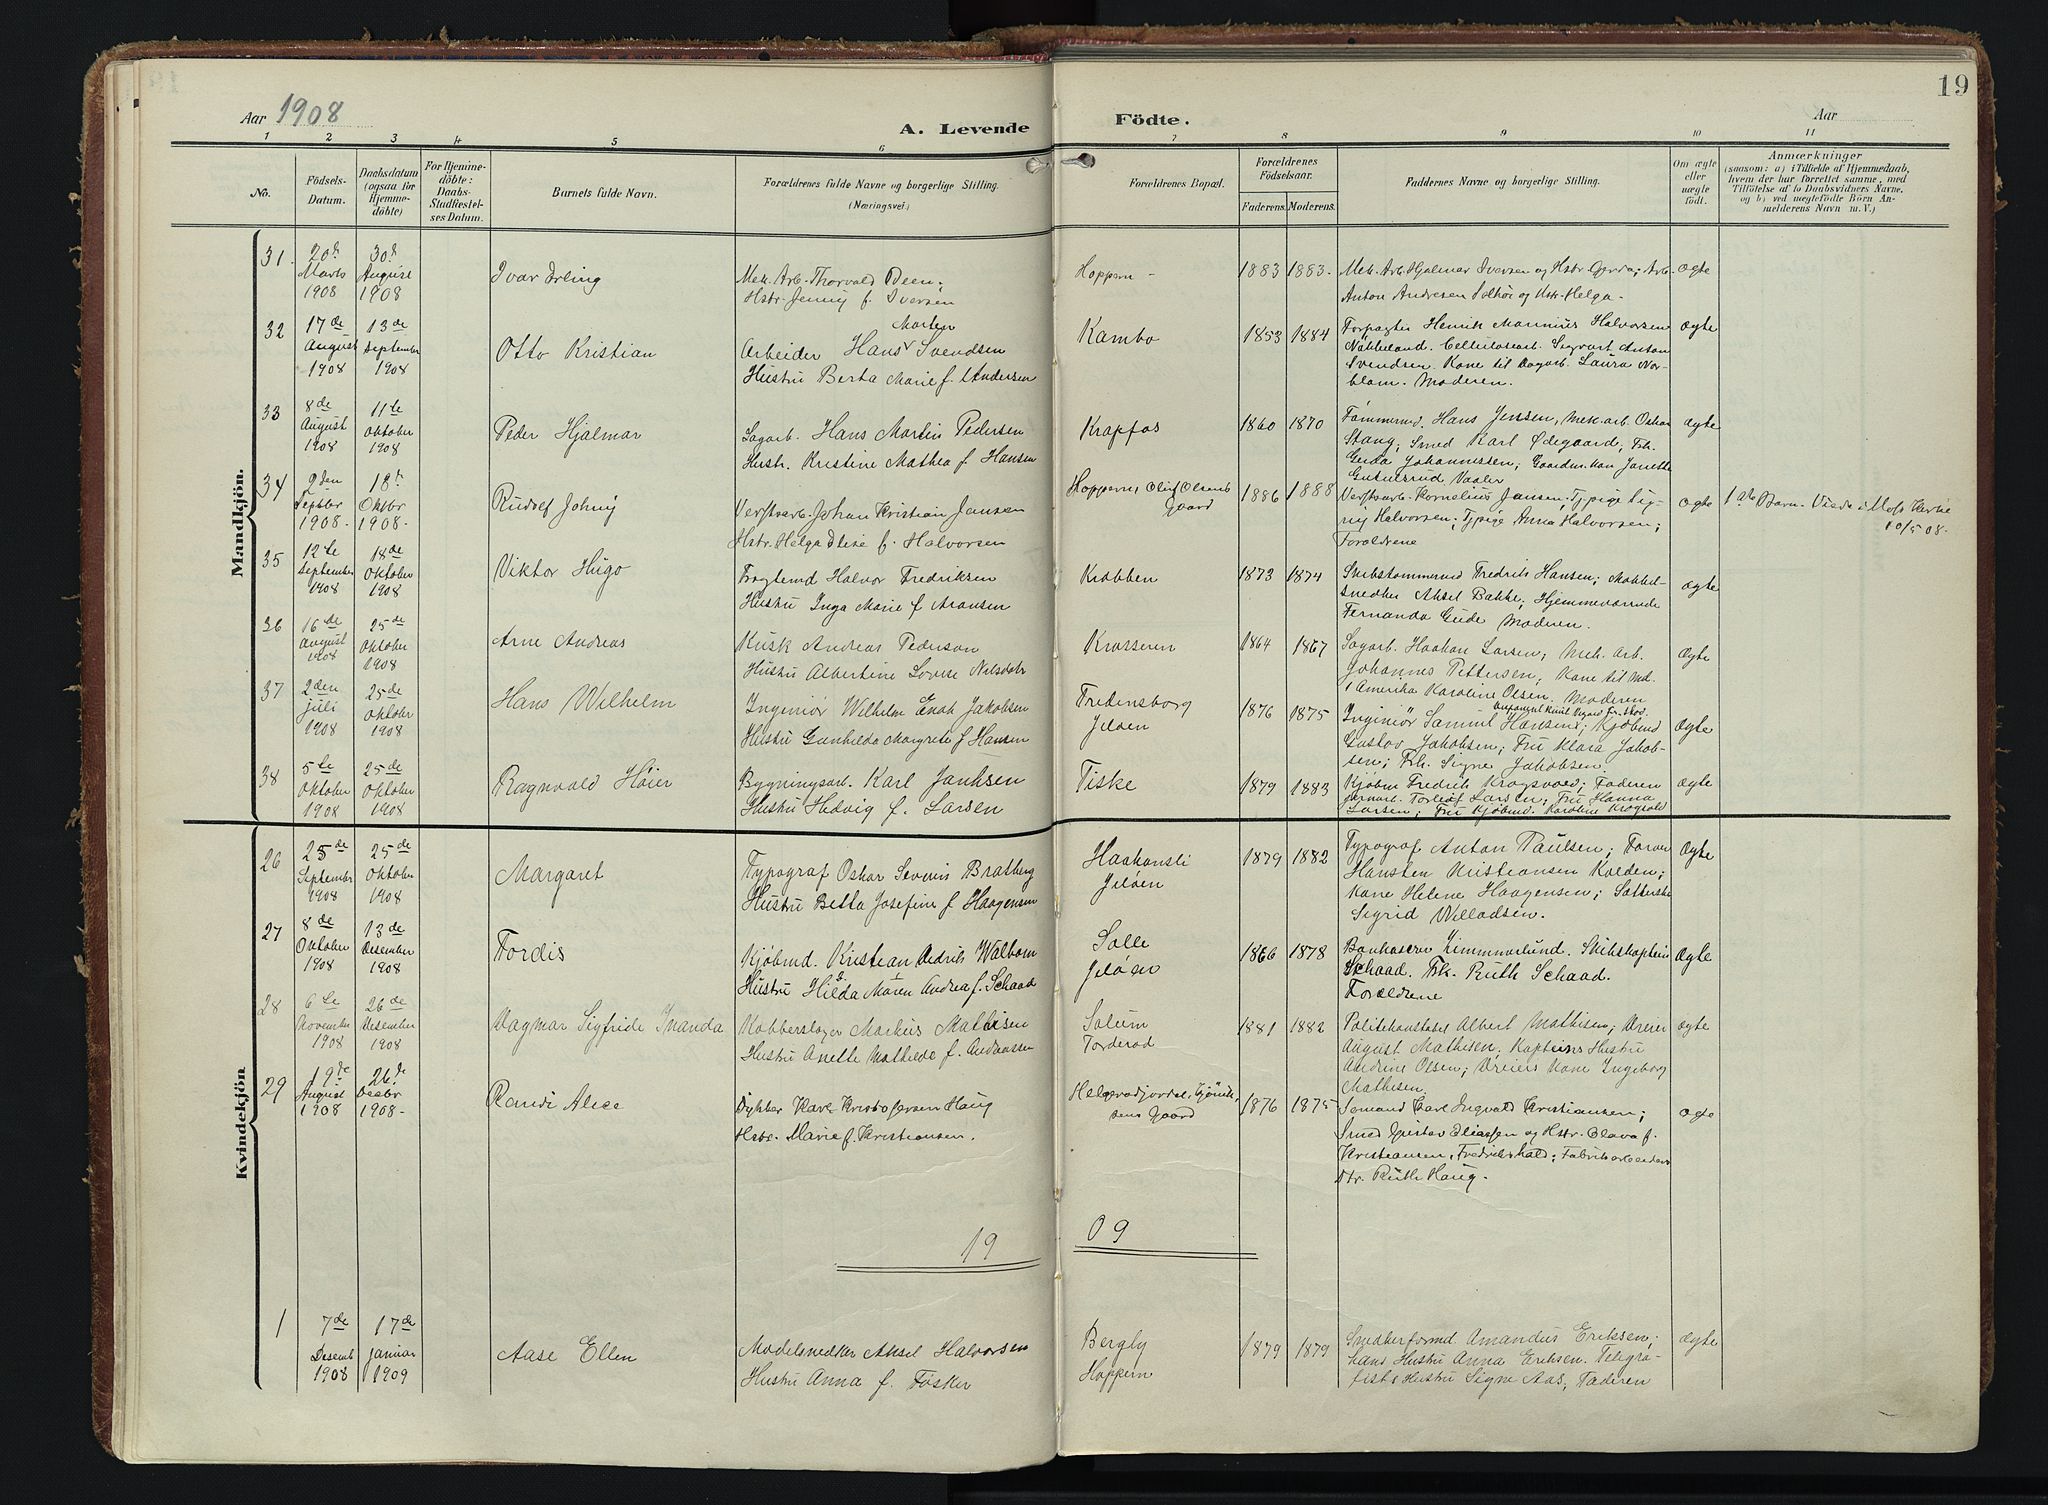 19
Aar 1908
A. Levende Födte.
Aar
1 2 3 4 5 6 7 8 9 10 11
No.
Födsels-
Datum.
Daabsdatum
(ogsaa for
Hjemme-
döbte)
For Hjemme-
döbte:
Daabs-
Stadfæstel-
ses Datum.
Barnets fulde Navn.
Forældrenes fulde Navne og borgerlige Stilling.
(Næringsvei.)
Forældrenes Bopæl.
Forældrenes
Födselsaar.
Faderens. Moderens.
Faddernes Navne og borgerlige Stilling.
Om ægte
eller
uægte
født.
Anmærkninger
(saasom: a) i Tilfælde af Hjemmedaab,
hvem der har forrettet samme, med
Tilföielse af to Daabsvidners Navne.
og b) ved uægtefödte Börn An-
melderens Navn m. V.)
Mandkjön.
31. 20de Marts 1908 30te August 1908 Ivar Erling
Mek. Arb. Thorvald Deen,
Hstr. Jenny f. Iversen
Hoppern - 1883 1883.
Mek. Arb. Hjalmar Iversen og Hstr. Gerda, Arb.
Anton Andresen Solhøi og Hstr. Helga.
Ægte
32 17de August 1908 13de September 1908 Otto Kristian
Morten
Arbeider Hans Svendsen
Hustru Berta Marie f. Andersen
Kambo 1853 1884
Forpagter Henrik Marinius Halvorsen
Nökkeland. Cellulosearb. Sigvart Anton
Svendsen. Kone til Dagarb. Laura Nor-
blom. Moderen.
Ægte
33 8de August 1908 11te Oktober 1908 Peder Hjalmar
Sagarb. Hans Martin Pedersen
Hustr. Kristine Mathea f. Hansen
Krapfos 1860 1870
Tömmermd. Hans Jensen, Mek. arb. Oskar
Stang, Smed Karl Ødegaard, Frk.
Gerda Johannessen, Gaardm. kon Janette
Gutulsrud Vaaler
Ægte
34 9den Septbr 1908- 18de Oktbr 1908- Rudolf Johny
Verftsarb. Johan Kristian Jansen
Hstr. Helga Elise f. Halvorsen
Hoppern, Oluf Olsens
Gaard
1886 1888
Verftsarb. Kornelius Jansen, Typige Sig-
nij Halvorsen, Typige Anna Halvorsen;
Forældrene
Ægte
1ste Barn. Viede i Moss Kirke
10/5 08.
35 12te September 1908 18de Oktober 1908 Viktor Hugo
Fragtemd Halvor Fredriksen
Hustru Inga Marie f Aronsen
Krabben 1873 1874
Skibstømmermd Fredrik Hansen; Møbbel-
snedker Aksel Bakke; Hjemmeværende
Fernanda Gude Moderen.
Ægte
36 16de August 1908 25de Oktober 1908 Arne Andreas
Kusk Andreas Pederson
Hustru Albertine Lovise Nilsdatr
Krosseren 1864 1867
Sagarb. Haakon Larsen; Mek. arb.
Johannes Pettersen; Kone til Md.
i Amerika Karoline Olsen. Moderen
Ægte
37 2den juli 1908 25de Oktober 1908 Hans Wilhelm
Ingeniör Wilhelm Enok Jakobsen
Hustru Gunhilda Margrete f Hansen
Fredensborg
Jeløen
1876 1875
Ingeniör Samuel Hansen; Kjøbmd
Gustav Jakobsen; Fru Klara Jakob-
sen; Frk. Signe Jakobsen
Ægte
38 5te Oktober 1908 25de Oktober 1908 Ragnvald Höier
Bygningsarb. Karl Janhsen
Hustru Hedvig f. Larsen
Tiske 1879 1883
Kjøbm Fredrik Krogsvold; Faderen
Jernarb. Torleif Larsen; Fru Hanna
Larsen; Fru Kjøbmd. Karoline Krogsvold
Ægte
Kvindekjön
26 25de September 1908 25de Oktober 1908 Margaret
Typograf Oskar Severin Bratberg
Hustru Betta Josefine f Haagensen
Haakonsli
Jeløen
1879 1882
Typograf Anton Paulsen; Farver
Hansten Kristiansen Kolden;
Kone Helene Haagensen; Sætterske
Sigrid Willadsen.
Ægte
27 8de Oktober 1908 13de Desember 1908 Tordis
Kjøbmd. Kristian Didrik Walbom
Hustru Hilda Maren Andrea f. Schaad
Solle
Jeløen
1866 1878
Bankaserer Kimmerlund. Skibskaptein
Schaad. Frk. Ruth Schaad.
Forældrene
Ægte
28 6te November 1908 26de Desember 1908 Dagmar Sigfride Inanda
Kobberslager Markus Mathisen
Hustru Anette Mathilde f. Andreassen
Solum
Torderød
1881 1882
Politikonstabel Albert Mathisen; Dreier
August Mathisen; Kapteins Hustru
Andrine Olsen; Dreiers Kone Ingeborg
Mathisen.
Ægte
29 19de August 1908 26de Decbr 1908- Randi Alice
Dykker Karl Kristofersen Haug
Hstr. Marie f. Kristiansen.
1876 1875
Sømand Carl Ingvald Kristiansen;
Smed Gustav Eliassen og Hstr. Olava f.
Kristiansen, Fredrikshald; Fabrikarbeiders
Dtr. Ruth Haug.
Ægte
19 09
1 7de Desemb 1908 17de januar 1909 Aase Ellen
Modelsnedker Aksel Halvorsen
Hustru Anna f. Fösker
Bergly
Hoppern
1879 1879
Snedkerformd Amandus Eriksen;
hans Hustru Anna Eriksen. Telegra-
fists Hustru Signe Aas; Faderen
Ægte